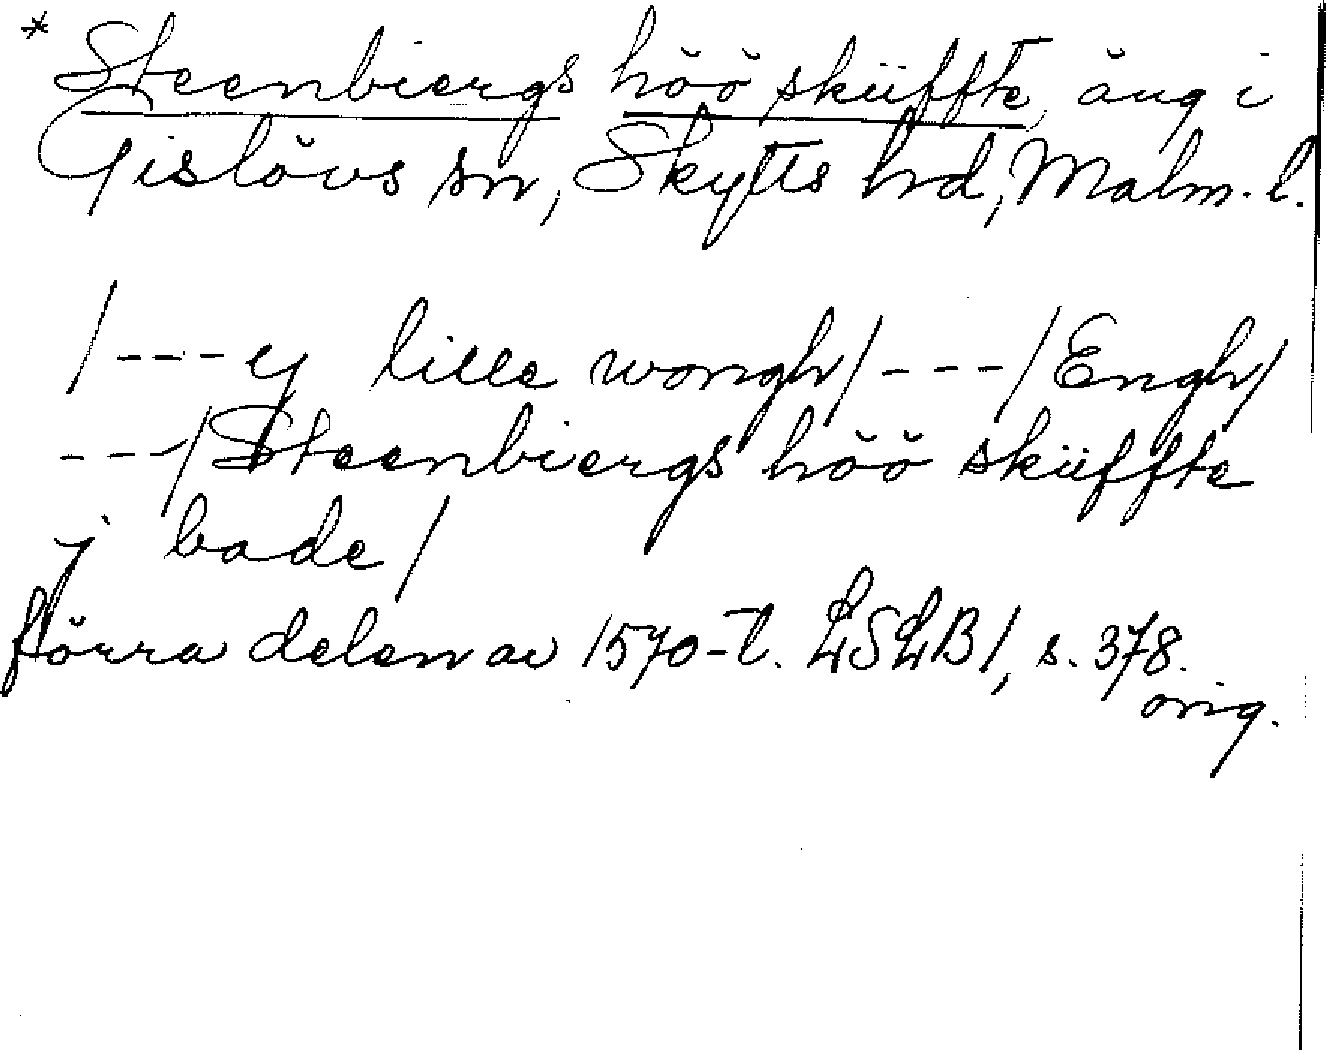 * Steenbiergs höö sküffte, äng i
Gislövs sn, Skytts hd, Malm. l.
/---ej lille wongh/---/Engh/
---/Steenbiergs höö sküffte
j bade/
förra delen av 1570-t. LSLB1, s. 378.
orig.